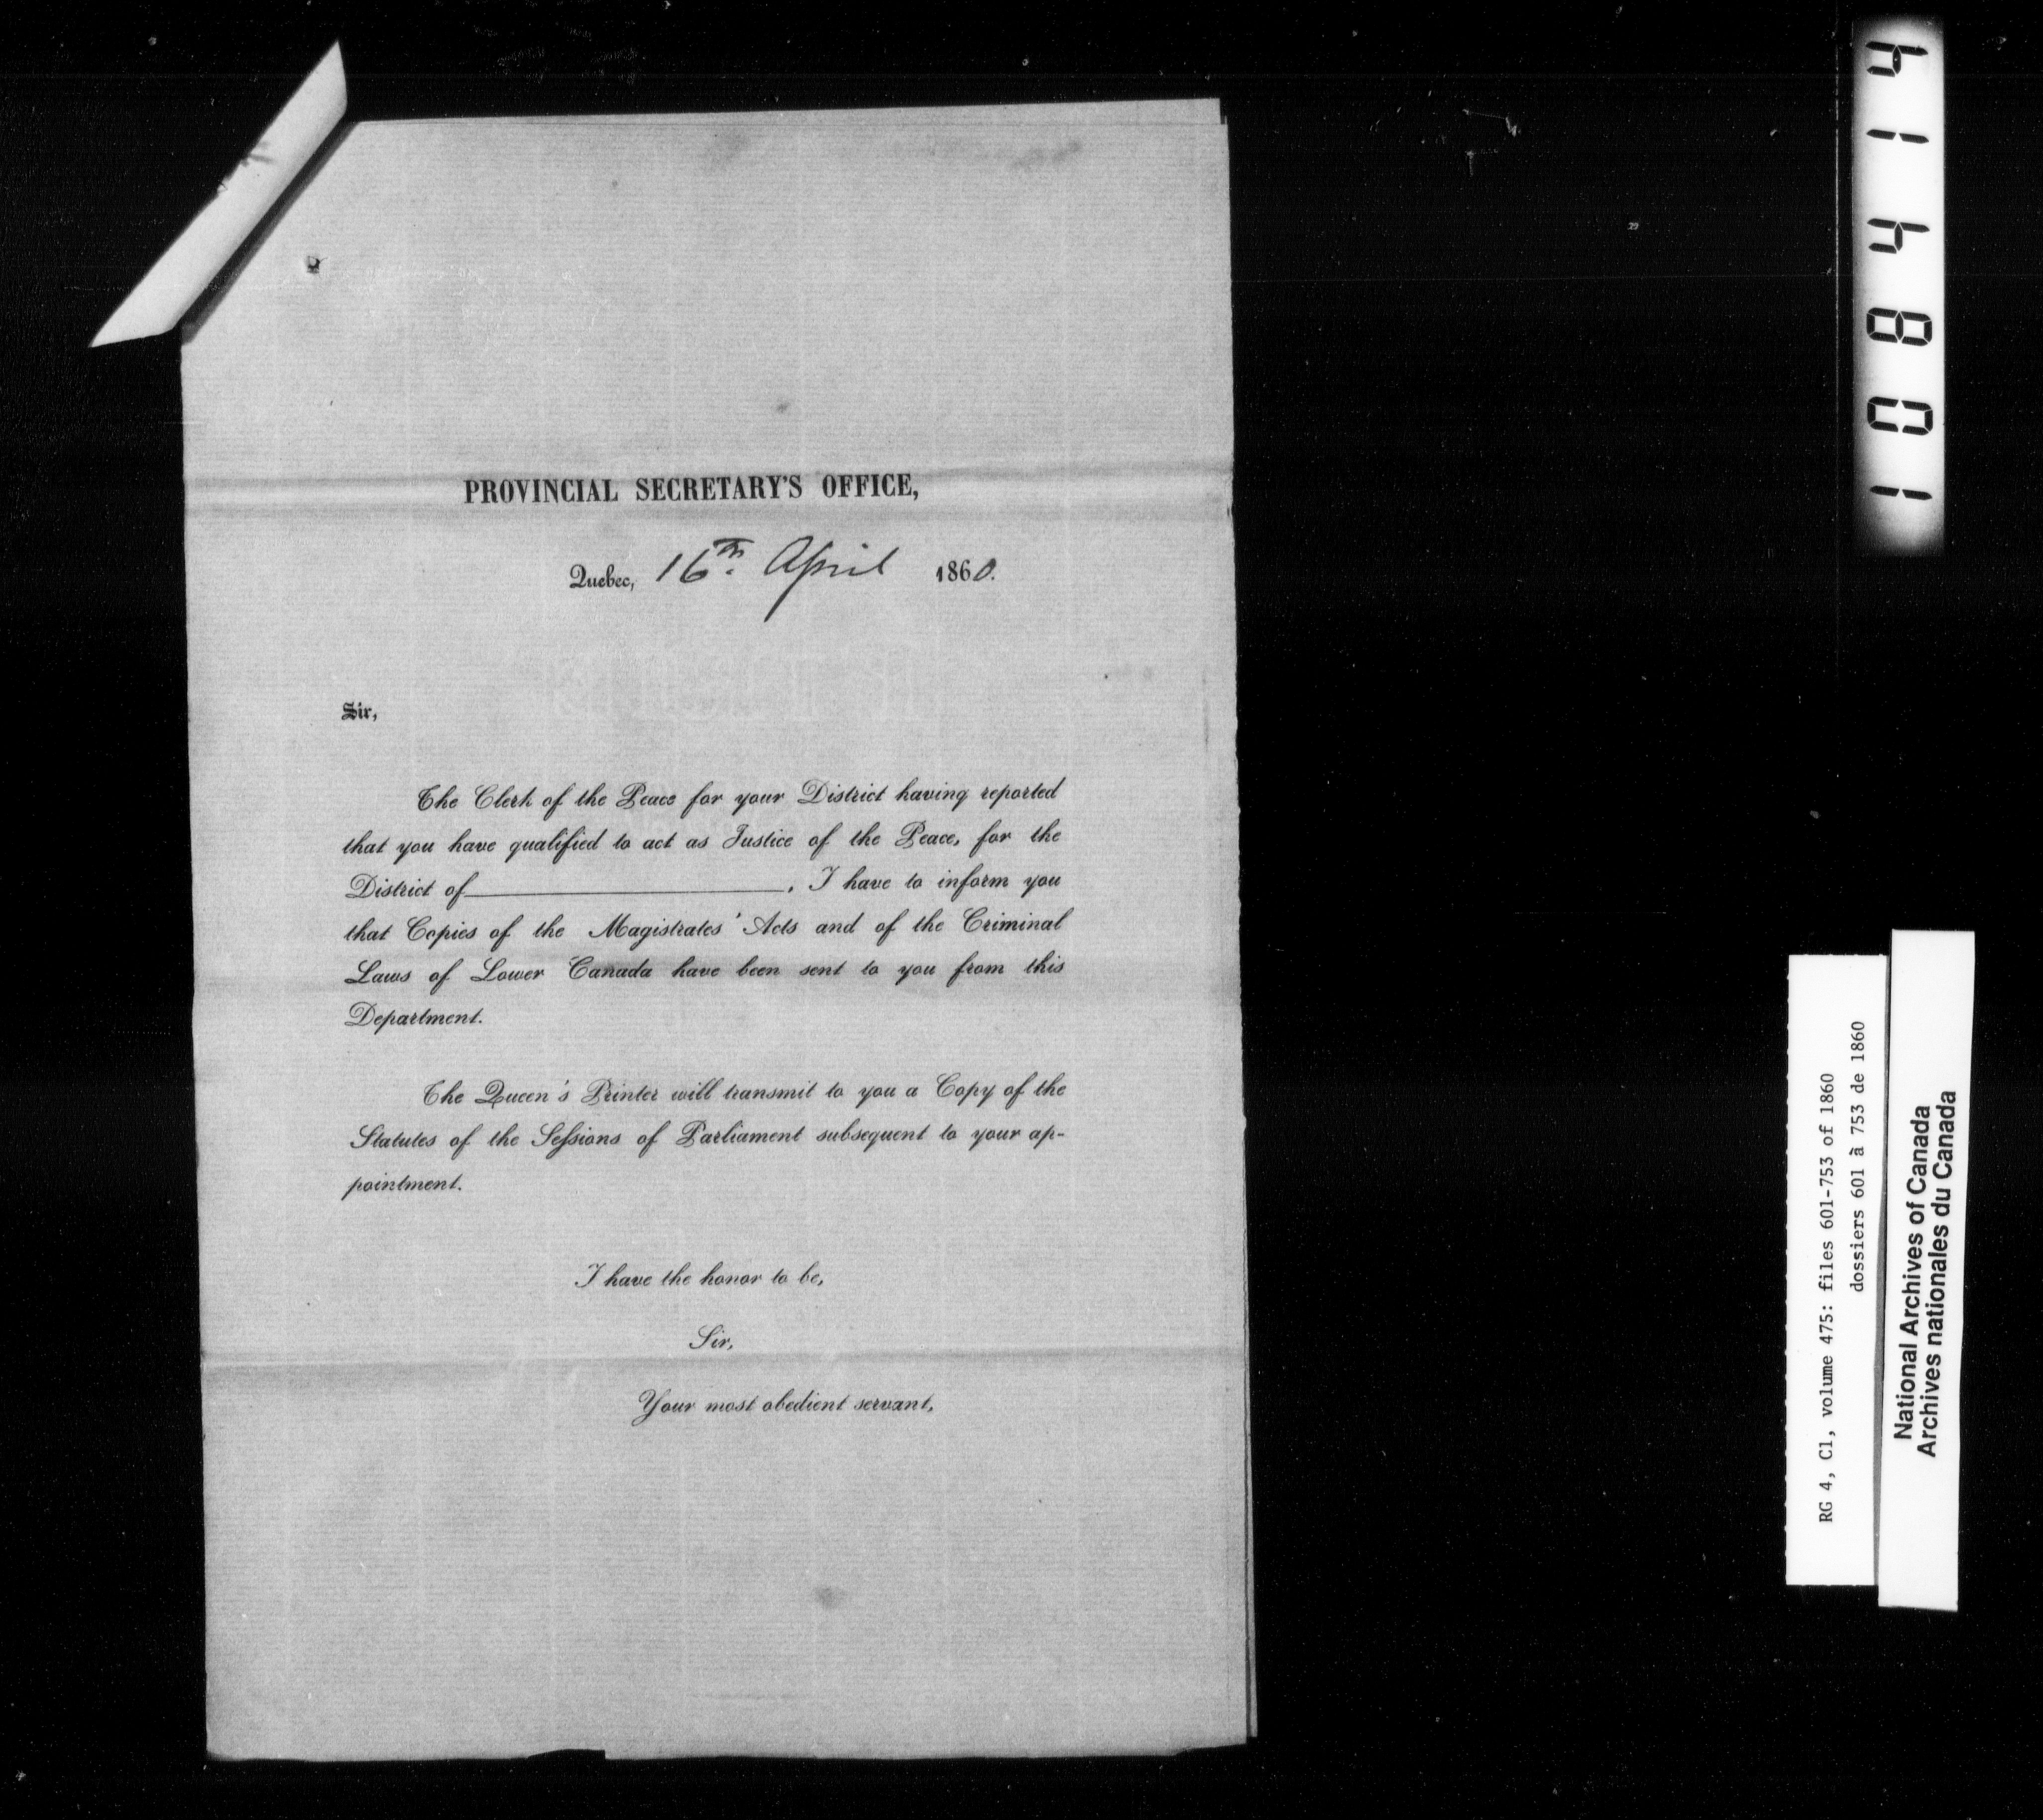 PROVINCIAL SECRETARY'S OFFICE,
Quebec, 16th. April 1860.
Sir,
The Clerk of the Peace for your District having reported
that you have qualified to act as Justice of the Peace, for the
District of ____________, I have to inform you
that Copies of the Magistrates' Acts and of the Criminal
Laws of Lower Canada have been sent to you from this
Department.
The Queen's Printer will transmit to you a Copy of the
Statutes of the Sessions of Parliament subsequent to your ap-
pointment.
I have the honor to be,
Sir,
Your most obedient servant,
108414
RG 4, C1, volume 475: files 601-753 of 1860
dossiers 601 à 753 de 1860
National Archives of Canada
Archives nationales du Canada